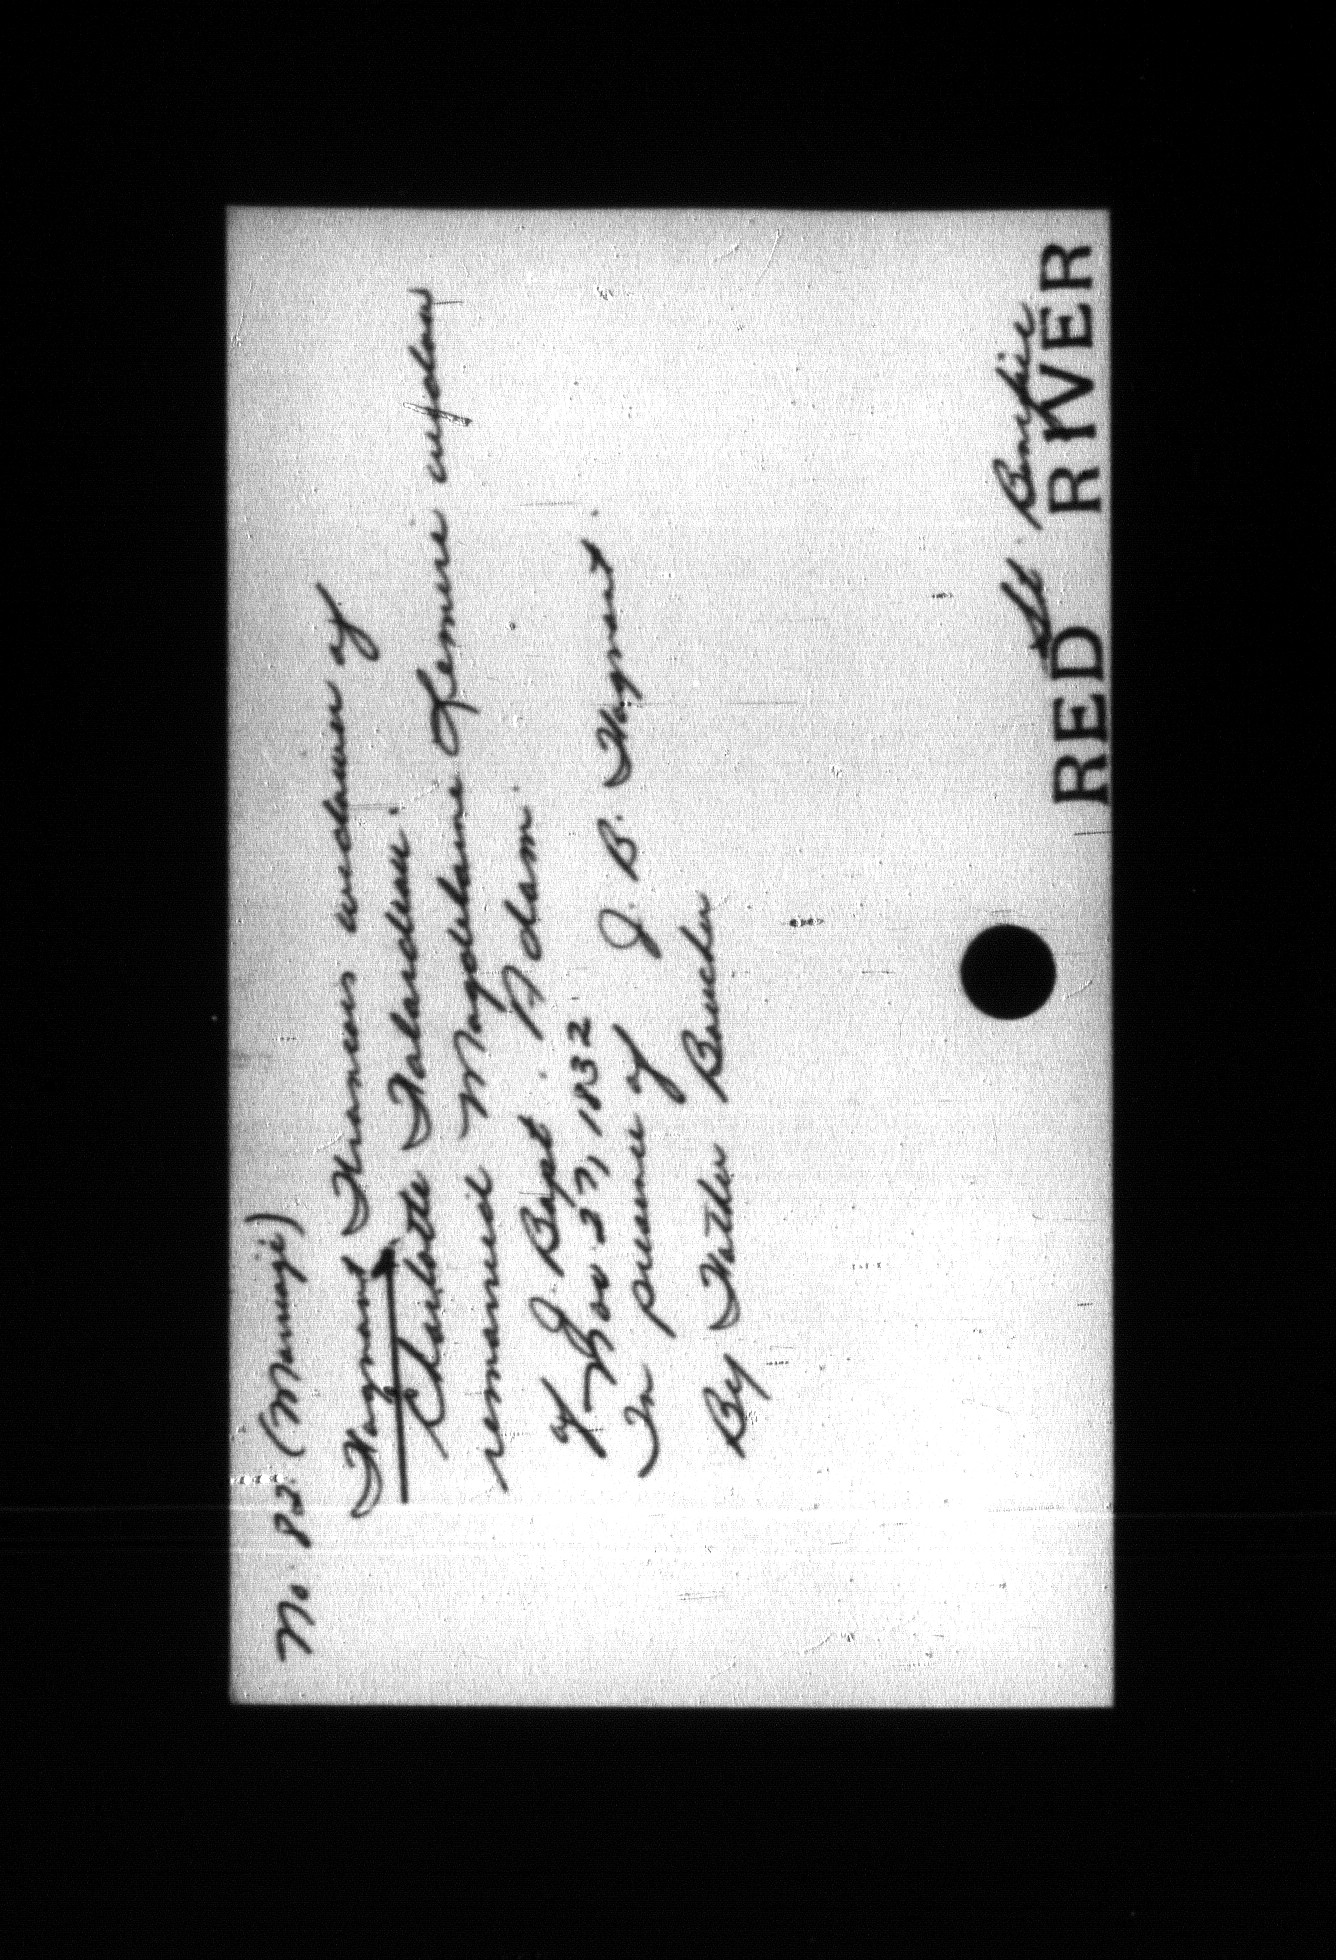 No. 82. (Marriage)
Fagnant Francois widower of
Charlotte Falardeau.
remarried Magdelaine Lemire widow
of J. Bapt. Adam.
Nov 27, 1832
In presence of J. B. Fagnant.
By Father Boucher
St. Boniface
RED RIVER